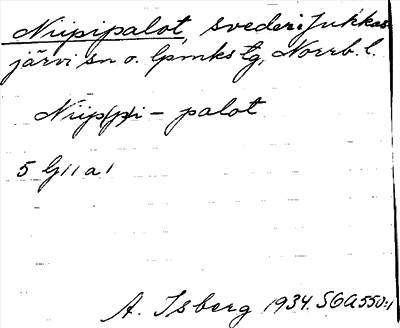 Niipipalot, sveder i Jukkas-
järvi sn o. lpmks tg, Norrb. l.
Niip(p)i - palot
5 G 11 a 1
A. Isberg 1934. SOA 550:1